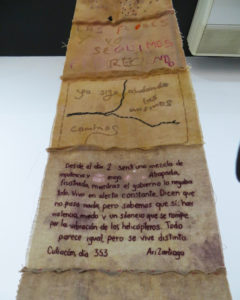 LOS
YO
SEGUIMOS
yo sigo andando
los
mismos
caminos
Desde el día 1 sentí una mezcla de
impotencia y Atrapada,
fastidiada, mientras el gobierno lo negaba
todo. Vivo en alerta constante. Dicen que
no pasa nada, pero sabemos que sí: hay
violencia, miedo y un silencio que se rompe
por la vibración de los helicópteros. Todo
parece igual, pero se vive distinto.
Culiacán, día 353 Ari Santiago